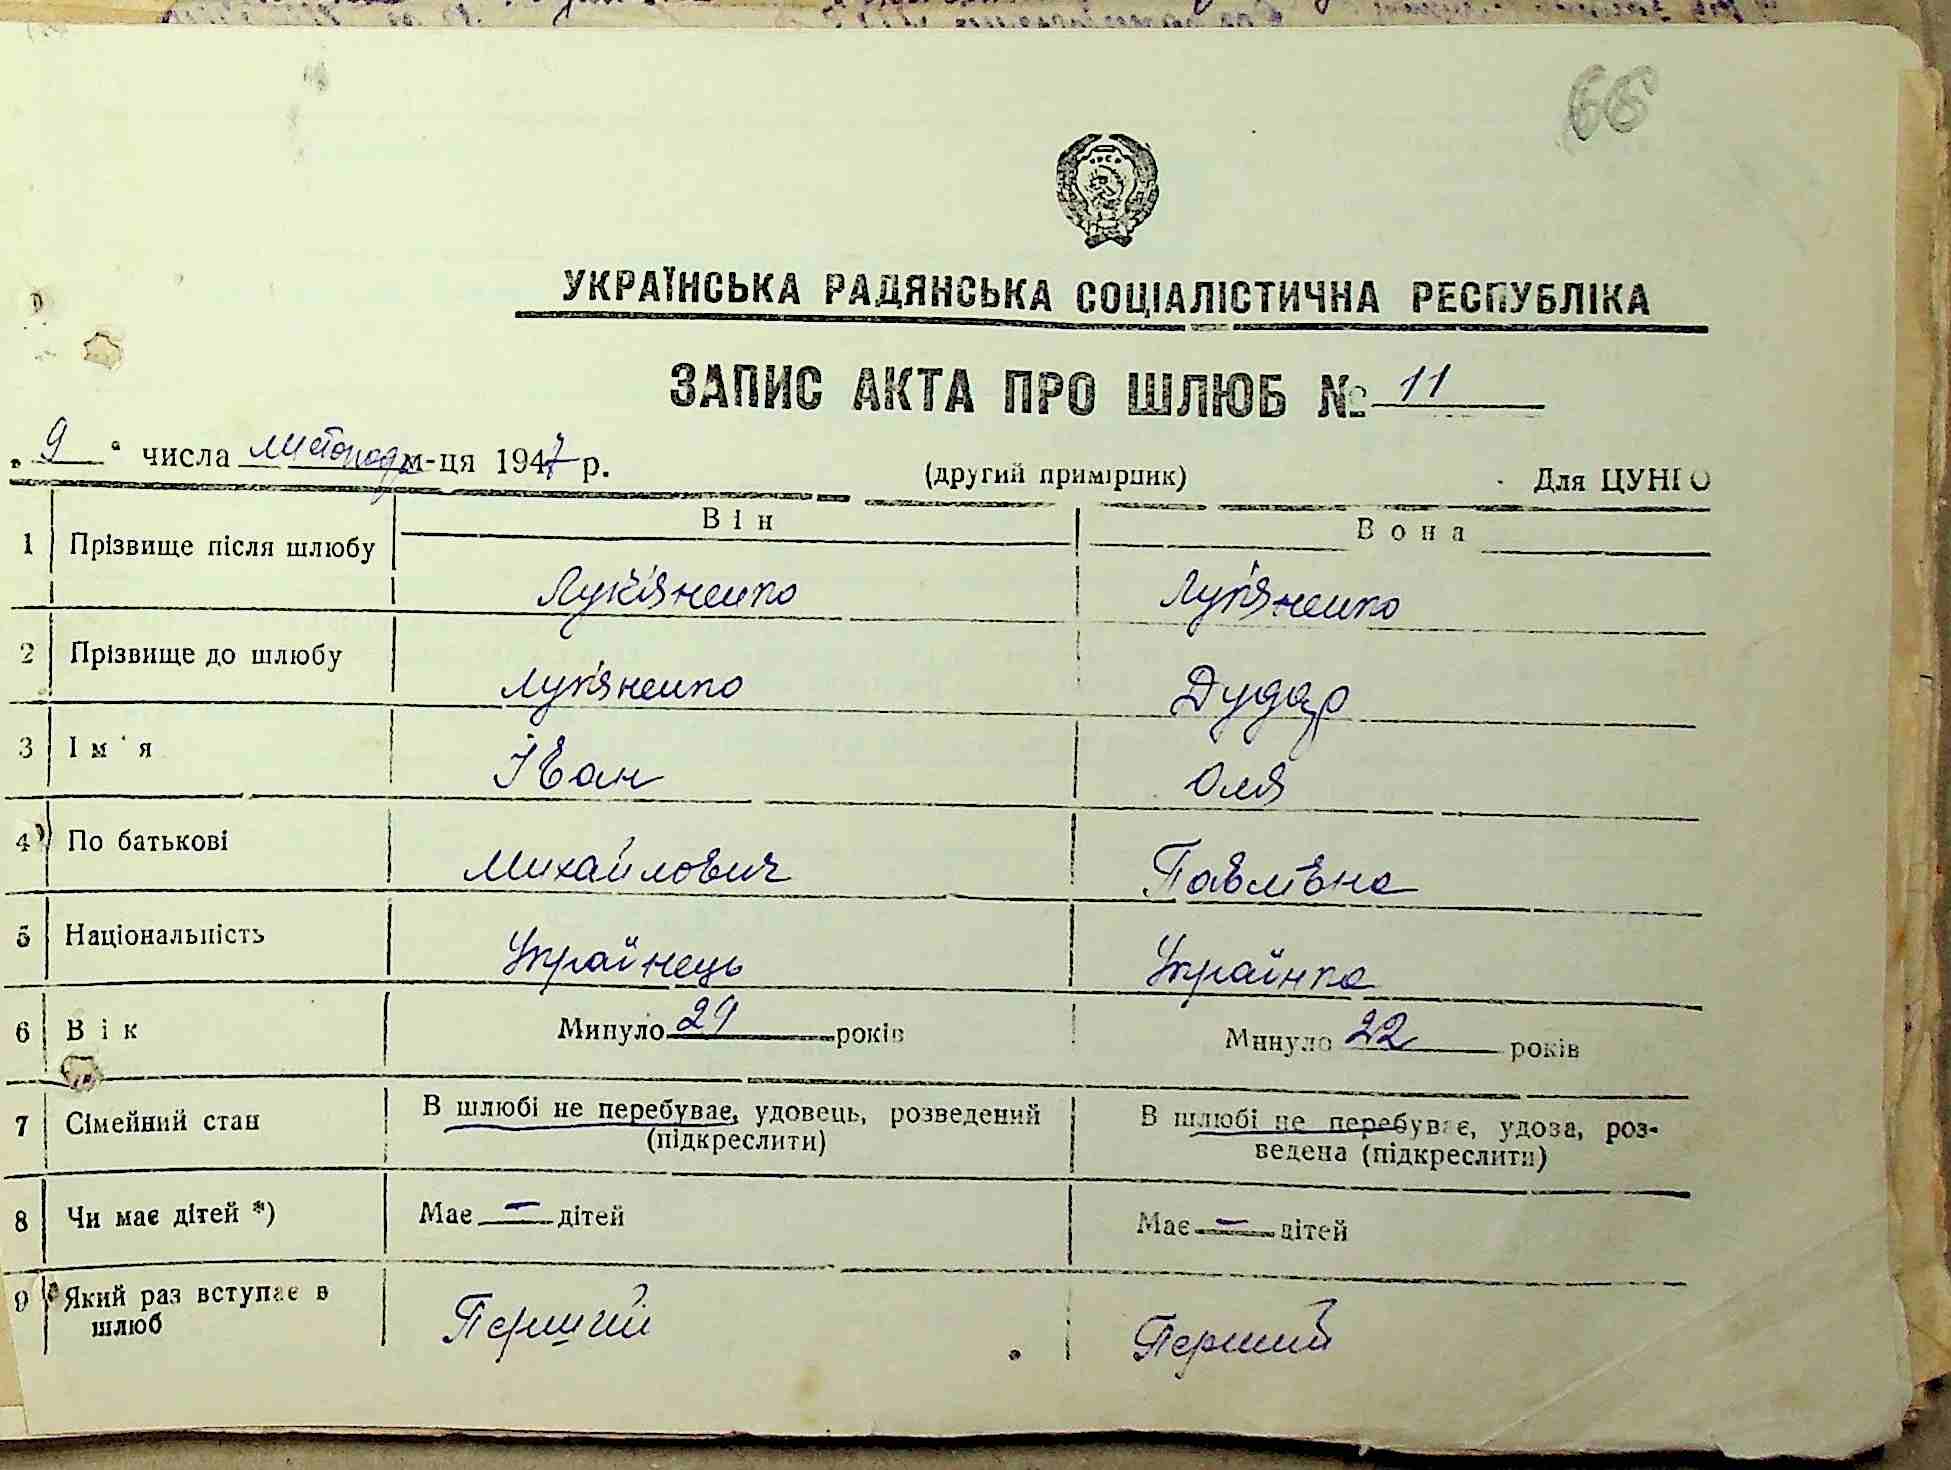 66
УКРАЇНСЬКА РАДЯНСЬКА СОЦІАЛІСТИЧНА РЕСПУБЛІКА
ЗАПИС АКТА ПРО ШЛЮБ № 11
„ 9 " числа листопада м-ця 1947 р.
(другий примірник)
Для ЦУНГО
Він
Вона
1 Прізвище після шлюбу Лук'яненко Лук'яненко
2 Прізвище до шлюбу Лук'яненко Дудар
3 Ім'я Іван Оля
4 По батькові Михайлович Павлівна
5 Національність Українець Українка
6 Вік Минуло 29 років Минуло 22 років
7 Сімейний стан В шлюбі не перебуває, удовець, розведений (підкреслити) В шлюбі не перебуває, удова, роз-
ведена (підкреслити)
8 Чи має дітей *) Має — дітей Має — дітей
9 Який раз вступає в
шлюб Перший Перший